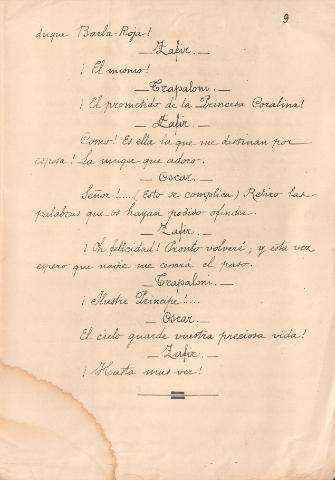 9
duque Barba-Roja!
— Zafir. —
¡ El mismo!
— Trapaloni. —
¡ El prometido de la Princesa Coralina!
— Zafir. —
Como! Es ella la que me destinan por
esposa! La mujer que adoro.
— Oscar. —
Señor!.... (Esto se complica) Retiro las
palabras que os hayan podido ofender.
— Zafir. —
¡ Oh felicidad! Pronto volveré, y esta vez
espero que nadie me cerrará el paso.
— Trapaloni. —
¡ Ilustre Principe!....
— Oscar. —
El cielo guarde vuestra preciosa vida!
— Zafir. —
¡ Hasta mas ver!